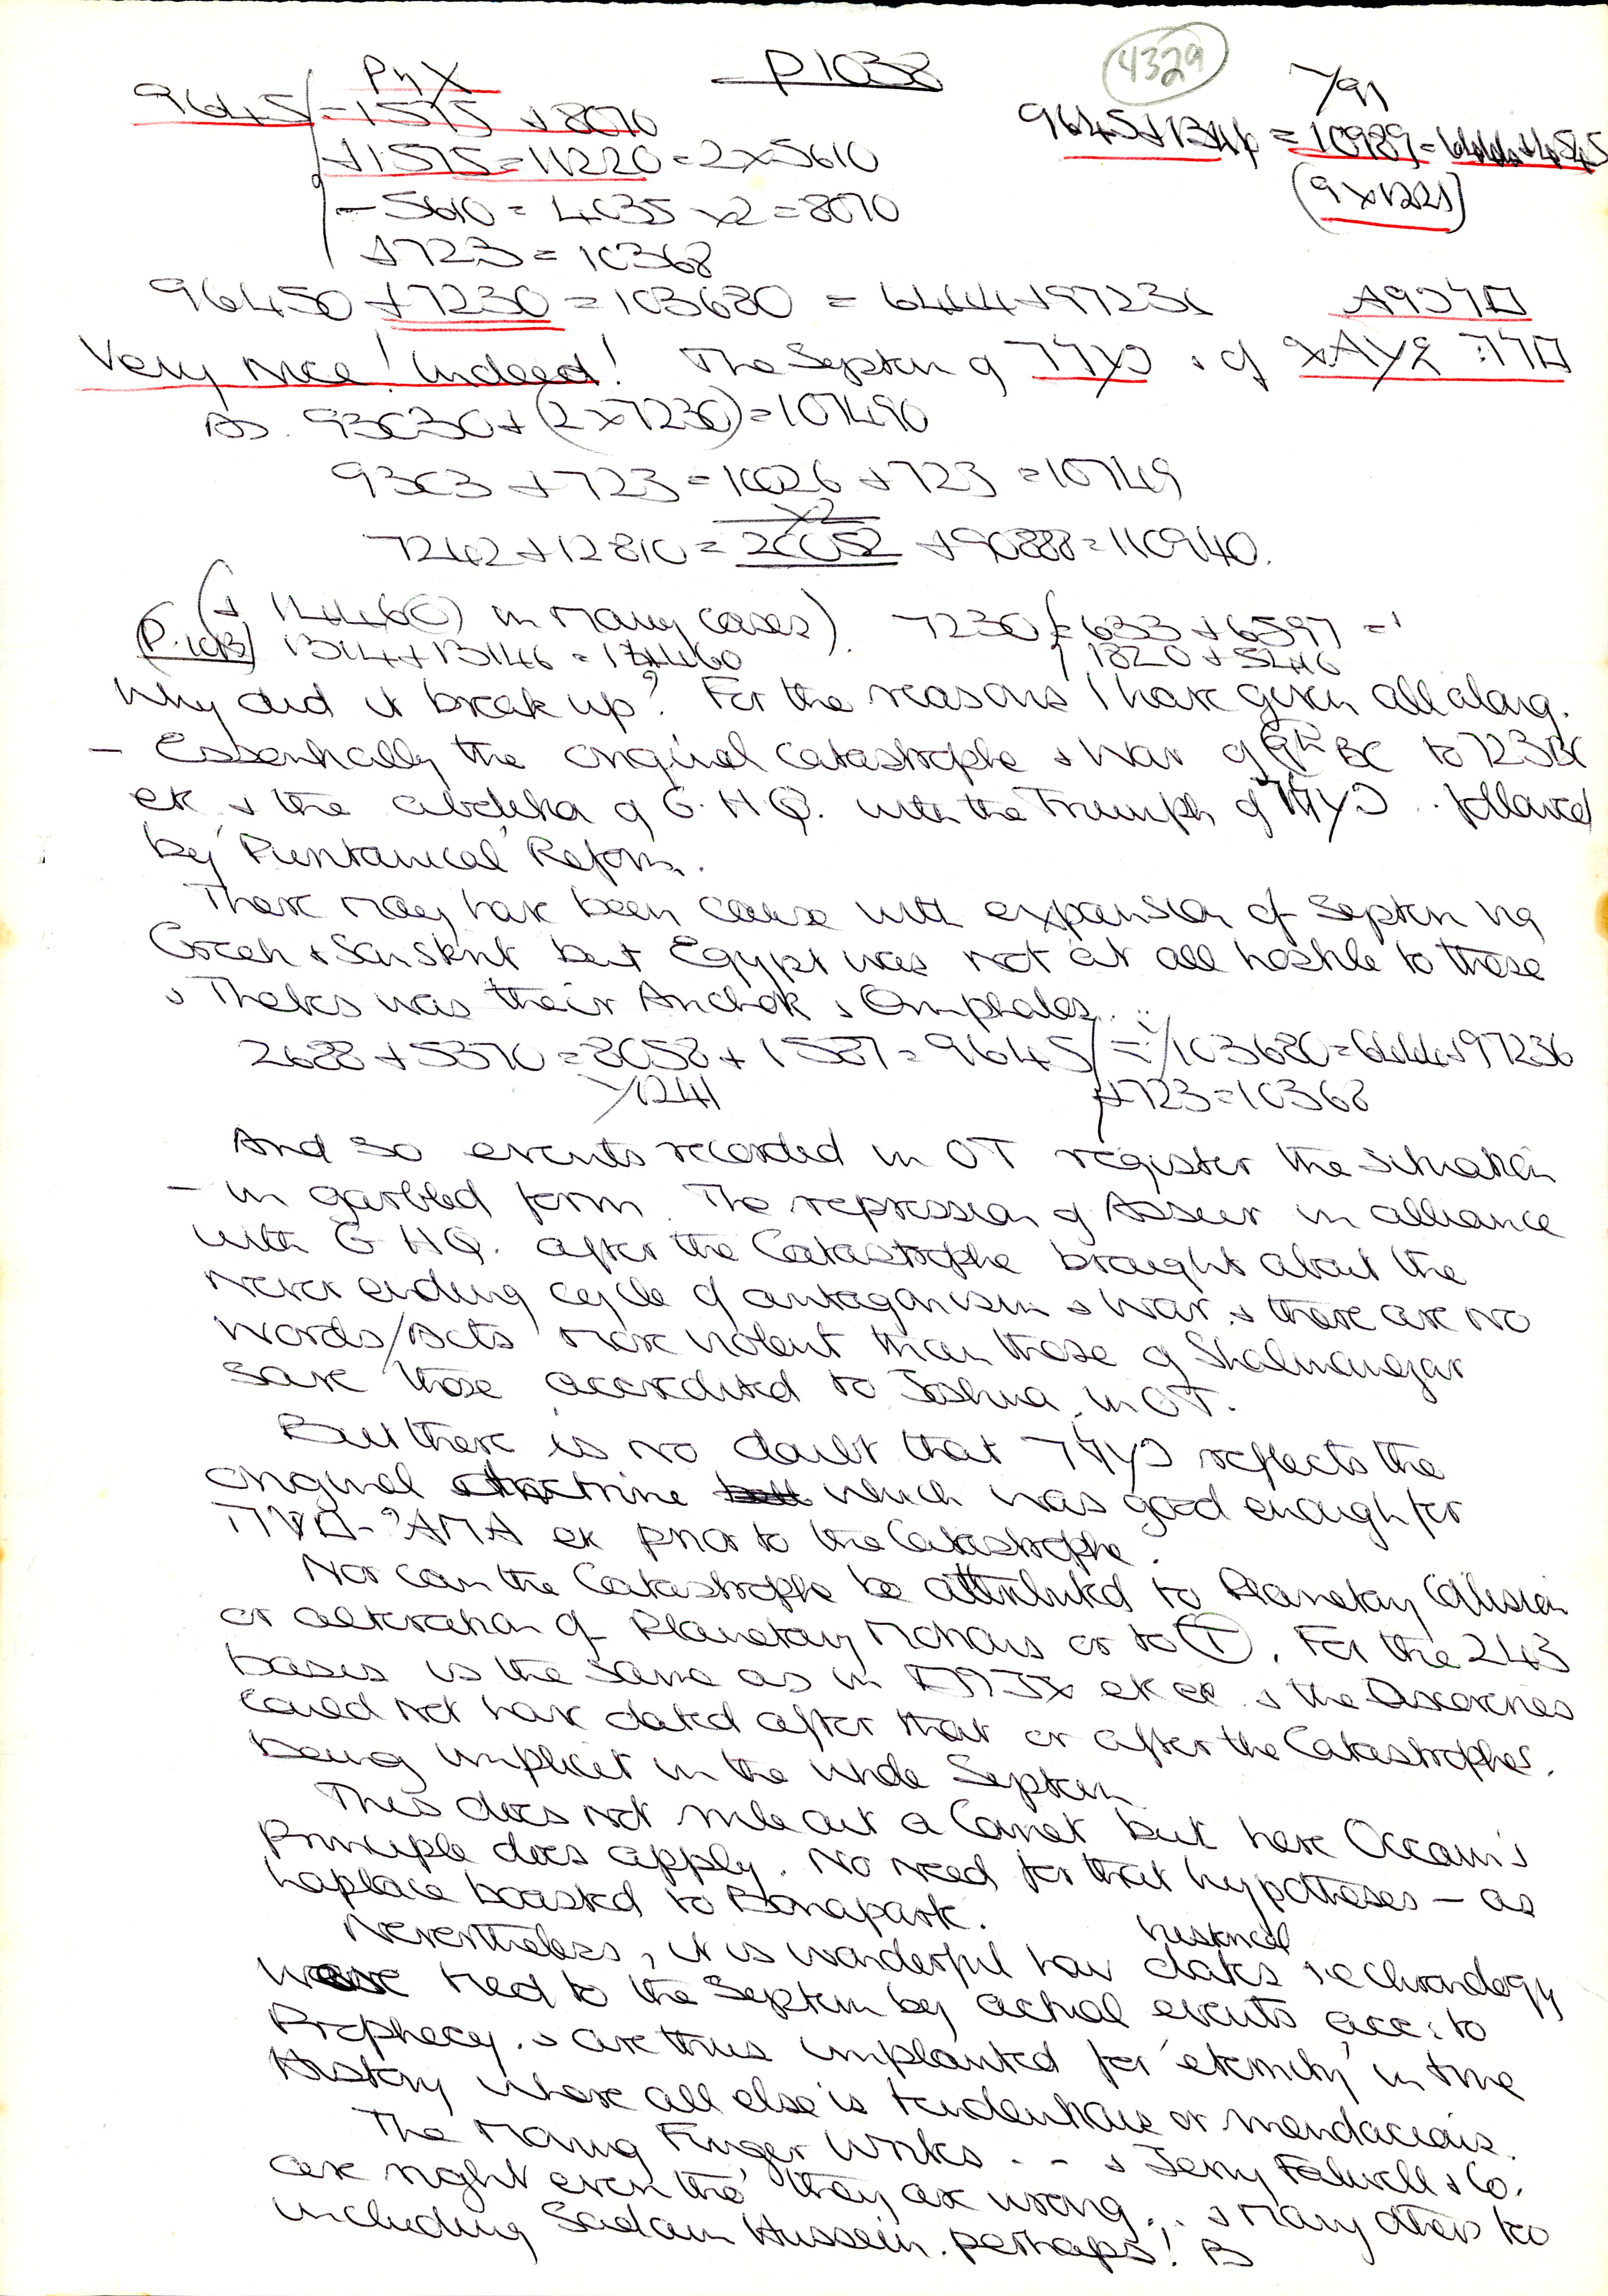 P1038
4329
7/91
9645 = 1575 + 8070
+1575 = 11220 = 2x5610
- 5610 = 4035 x2 = 8070
+723 = 10368
9645+1344 = 10989 = 6444+4545
(9x1221)
96450 +7230 = 103680 = 6444+97236
Very nice! Indeed! The Septen of
As. 93030+(2x7230)=107490
9303 +723=10026 +723 =10749
x2
7242+12810=20052 +90888=110940.
(+ 14460) in many cases). 7230 = 633+6597 =
1314+13146 = 14460 1820 +
Why did it break up? For the reasons I have given all along.
– Essentially the original Catastrophe & War of BC to 723BC
etc & the of G.H.Q. with the Triumph of .. followed
by 'Puritanical' Reform.
There may have been cause with expansion of Septen via
Greek & Sanskrit but Egypt was not at all hostile to these
& Thebes was their Anchor & Omphalos..
2688 +5370=8058+1587=9645 = 103680=6444+97236
+723=10368
And so events recorded in OT register the situation
– in garbled form. The repression of Asseur in alliance
with G HQ. after the Catastrophe brought about the
never ending cycle of antagonism & War. & there are no
Words/Acts more violent than those of Shalmanezar
save those accredited to Joshua. in OT.
But there is no doubt that reflects the
original doctrine which was good enough for
etc prior to the Catastrophe.
Nor can the Catastrophe be attributed to Planetary Collision
or alteration of Planetary Motions or to (T). For the 243
basis is the same as in etc & the
could not have dated after that or after the Catastrophe.
being implicit in the whole Septen
This does not rule out a Comet but here Occam's
Principle does apply. No need for that hypotheses – as
Laplace boasted to Bonaparte.
Nevertheless, it is wonderful how historical dates i.e chronology
were tied to the Septen by actual events acc: to
Prophecy. & are thus implanted for 'eternity' in true
History where all else is tendentious or mendacious.
The Moving Finger Writes . . – & Jerry Falwell & Co.
are right even tho' they are wrong . . & many others too
including Sadam Hussein. perhaps! B